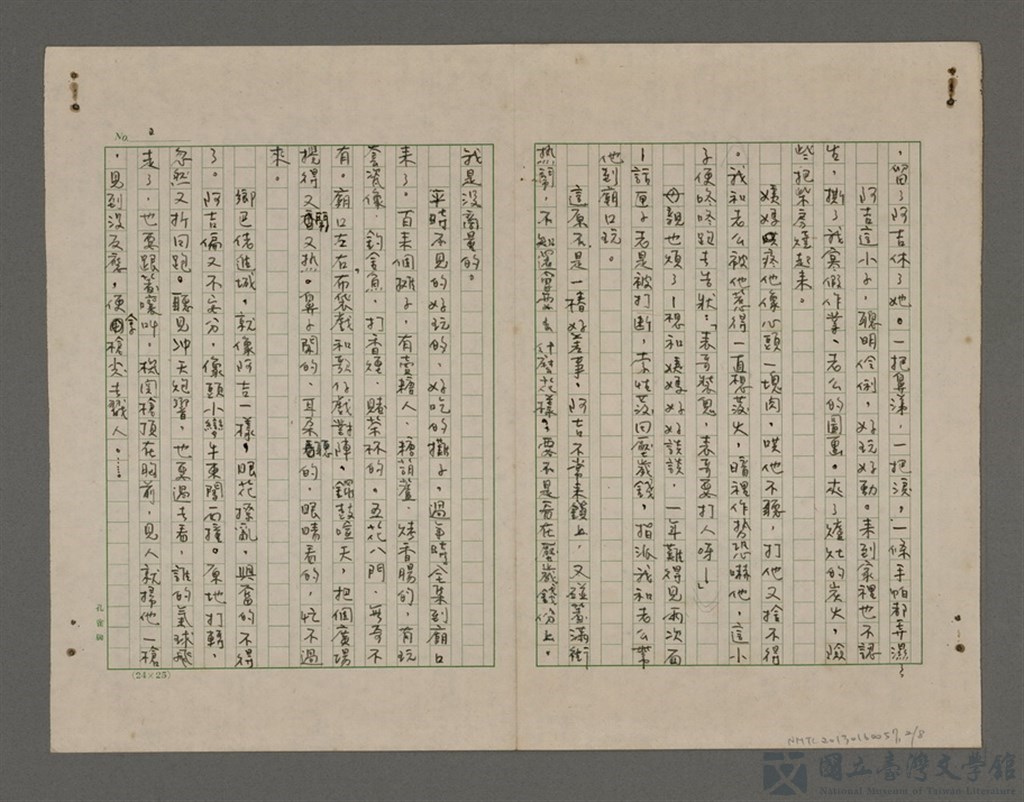 ，留了阿吉休了她。一把鼻涕，一把淚，一條手帕都弄濕了
阿吉這小子，聰明伶俐，好玩好動。來到家裡也不認
生，撕了我寒假作業、老么的圖畫。夾了爐灶的炭火，險
些把柴房燒起來。
姨媽疼他像心頭一塊肉，哄他不聽，打他又捨不得
。我和老么被他惹得一直想發火，暗裡作勢恐嚇他，這小
子便咚咚跑去告狀：「表哥發兇，表哥要打人呀！」
母親也煩了！想和姨媽好好談談，一年難得見兩次面
！話匣子老是被打斷，索性發回壓歲錢，指派我和老么帶
他到廟口玩。
這原不是一樁好差事，阿吉不常來鎮上，又碰著滿街
熱鬧，不知還會要出什麼花樣，要不是看在壓歲錢份上，
我是沒商量的。
平時不見的好玩的、好吃的攤子，過年時全集到廟口
來了。百來個攤子，有賣糖人、糖葫蘆、烤香腸的，有玩
套瓷像、釣金魚、打香煙、賭茶杯的。五花八門，無奇不
有。廟口左右，布袋戲和歌仔戲對陣，鑼鼓喧天，把個廣場
攪得又鬧又熱。鼻子聞的、耳朵聽的、眼睛看的，忙不過
來。
鄉巴佬進城，就像阿吉一樣，眼花撩亂，興奮的不得
了。阿吉偏又不安分，像頭小蠻牛東闖西撞。原地打轉，
忽然又折回跑。聽見沖天炮響，也要過去看，誰的氣球飛
走了，也要跟著嚷叫，機關槍頂在胸前，見人就掃他一槍
，見到沒反應，便拿槍尖去戳人。…
No. 2
孔雀牌
(24×25)
NMTL 2013 0160057, 2/8
國立臺灣文學館
National Museum of Taiwan Literature